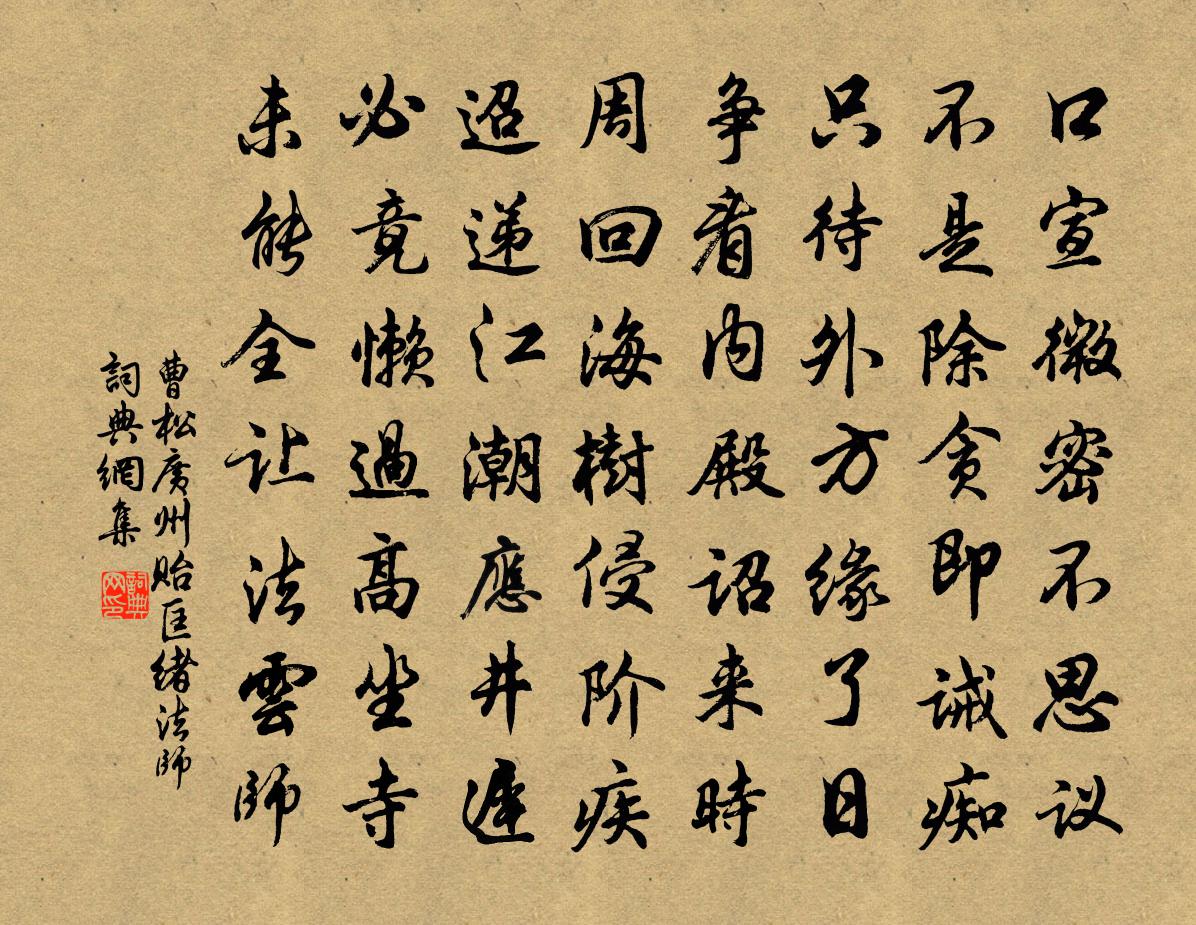 口宣微密不思议
不是除贪即诫痴
只待外方缘了日
争看内殿诏来時
周回海樹侵阶疾
迢递江潮應井遲
必竟懒過高坐寺
未能全让法雲師
曹松廣州贻匡绪法師
詞典網集
詞典网印